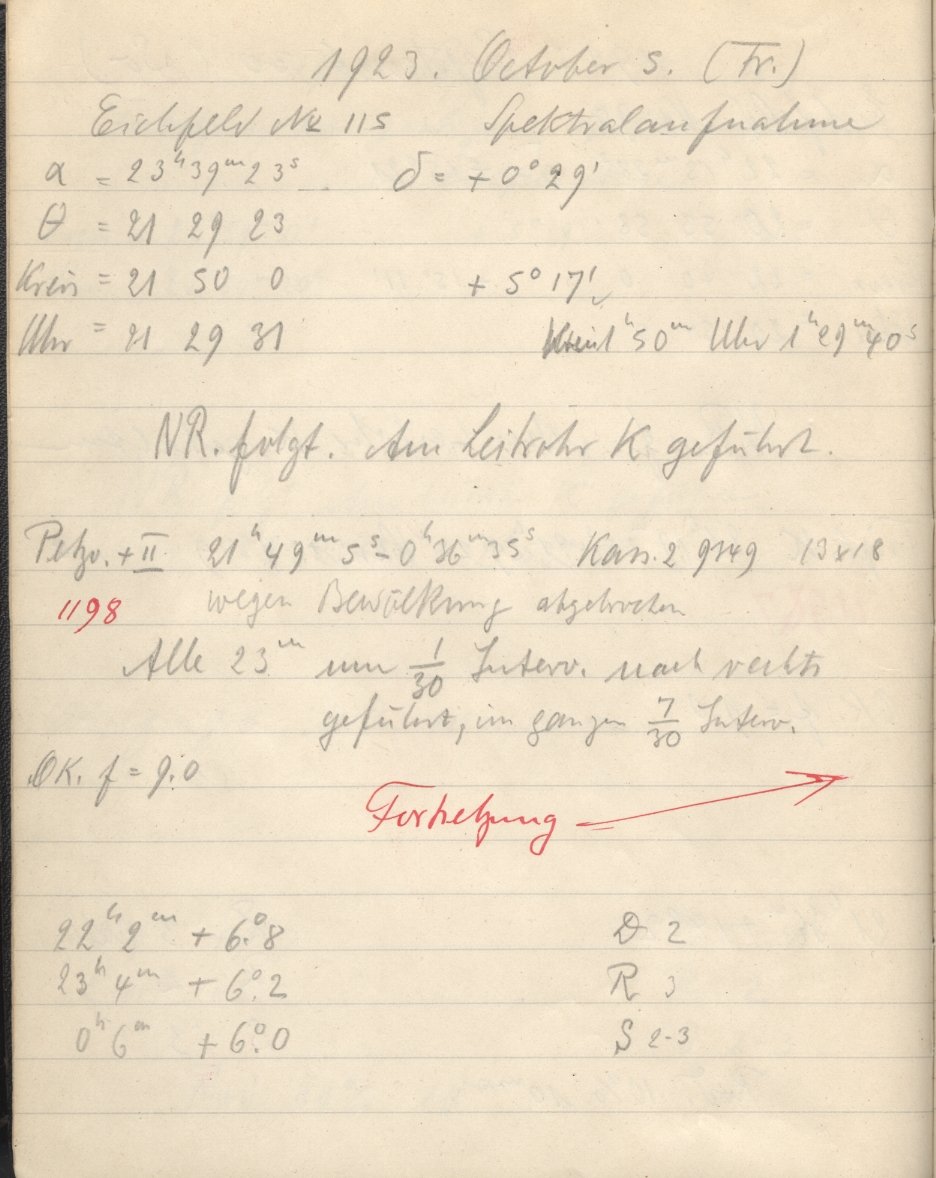 1923. October 5. (Fr.)
Eichfeld № 115 Spektralaufnahme
α = 23ʰ39ᵐ23ˢ δ = +0° 29'
θ = 21 29 23
Kreis = 21 50 0 + 5° 17'
Uhr = 21 29 31 1ʰ50ᵐ Uhr 1ʰ29ᵐ40ˢ
NR. folgt. Am Leitrohr K geführt.
Petzv. + II 21ʰ49ᵐ5ˢ - 0ʰ36ᵐ35ˢ Kass. 2 9749 13x18
1198 wegen Bewölkung abgebrochen
Alle 23ᵐ um 1/30 Interv. nach rechts
geführt, im ganzen 7/30 Interv.
OK. f = 9.0
Fortsetzung →
22ʰ2ᵐ + 6.°8 D 2
23ʰ4ᵐ + 6.°2 R 3
0ʰ6ᵐ + 6.°0 S 2-3